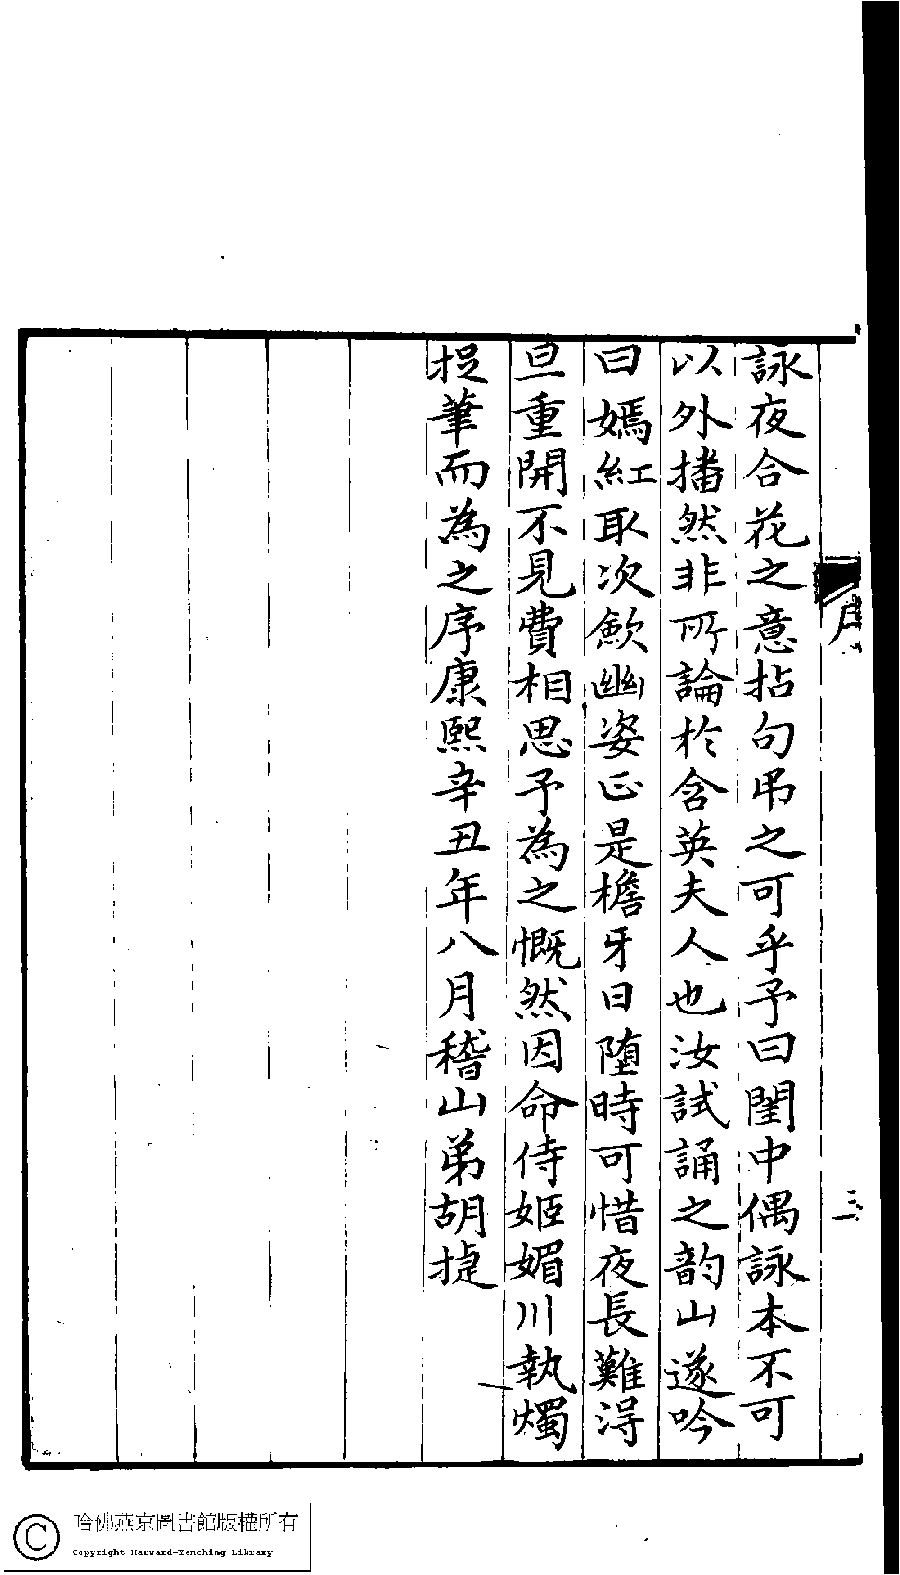 詠夜合花之意拈句弔之可乎予曰閨中偶詠本不可
以外播然非所論於含英夫人也汝試誦之韵山遂吟
曰嫣紅取次歛幽姿正是檐牙日墮時可惜夜長難得
旦重開不見費相思予為之慨然因命侍姬媚川執燭
捉筆而為之序康熙辛丑年八月稽山弟胡捷
序
三
哈佛燕京圖書館版權所有
Copyright Harvard-Yenching Library